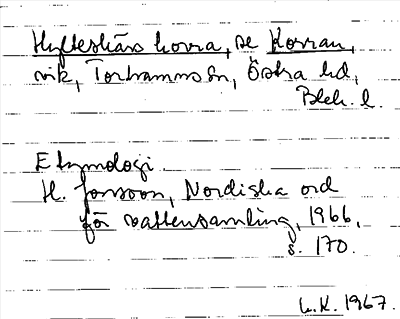 Hylteskärs horra, se Horran,
vik, Torhamns sn, Östra hd,
Blek. l.
Etymologi
H. Jonsson, Nordiska ord
för vattensamling, 1966,
s. 170.
1967.